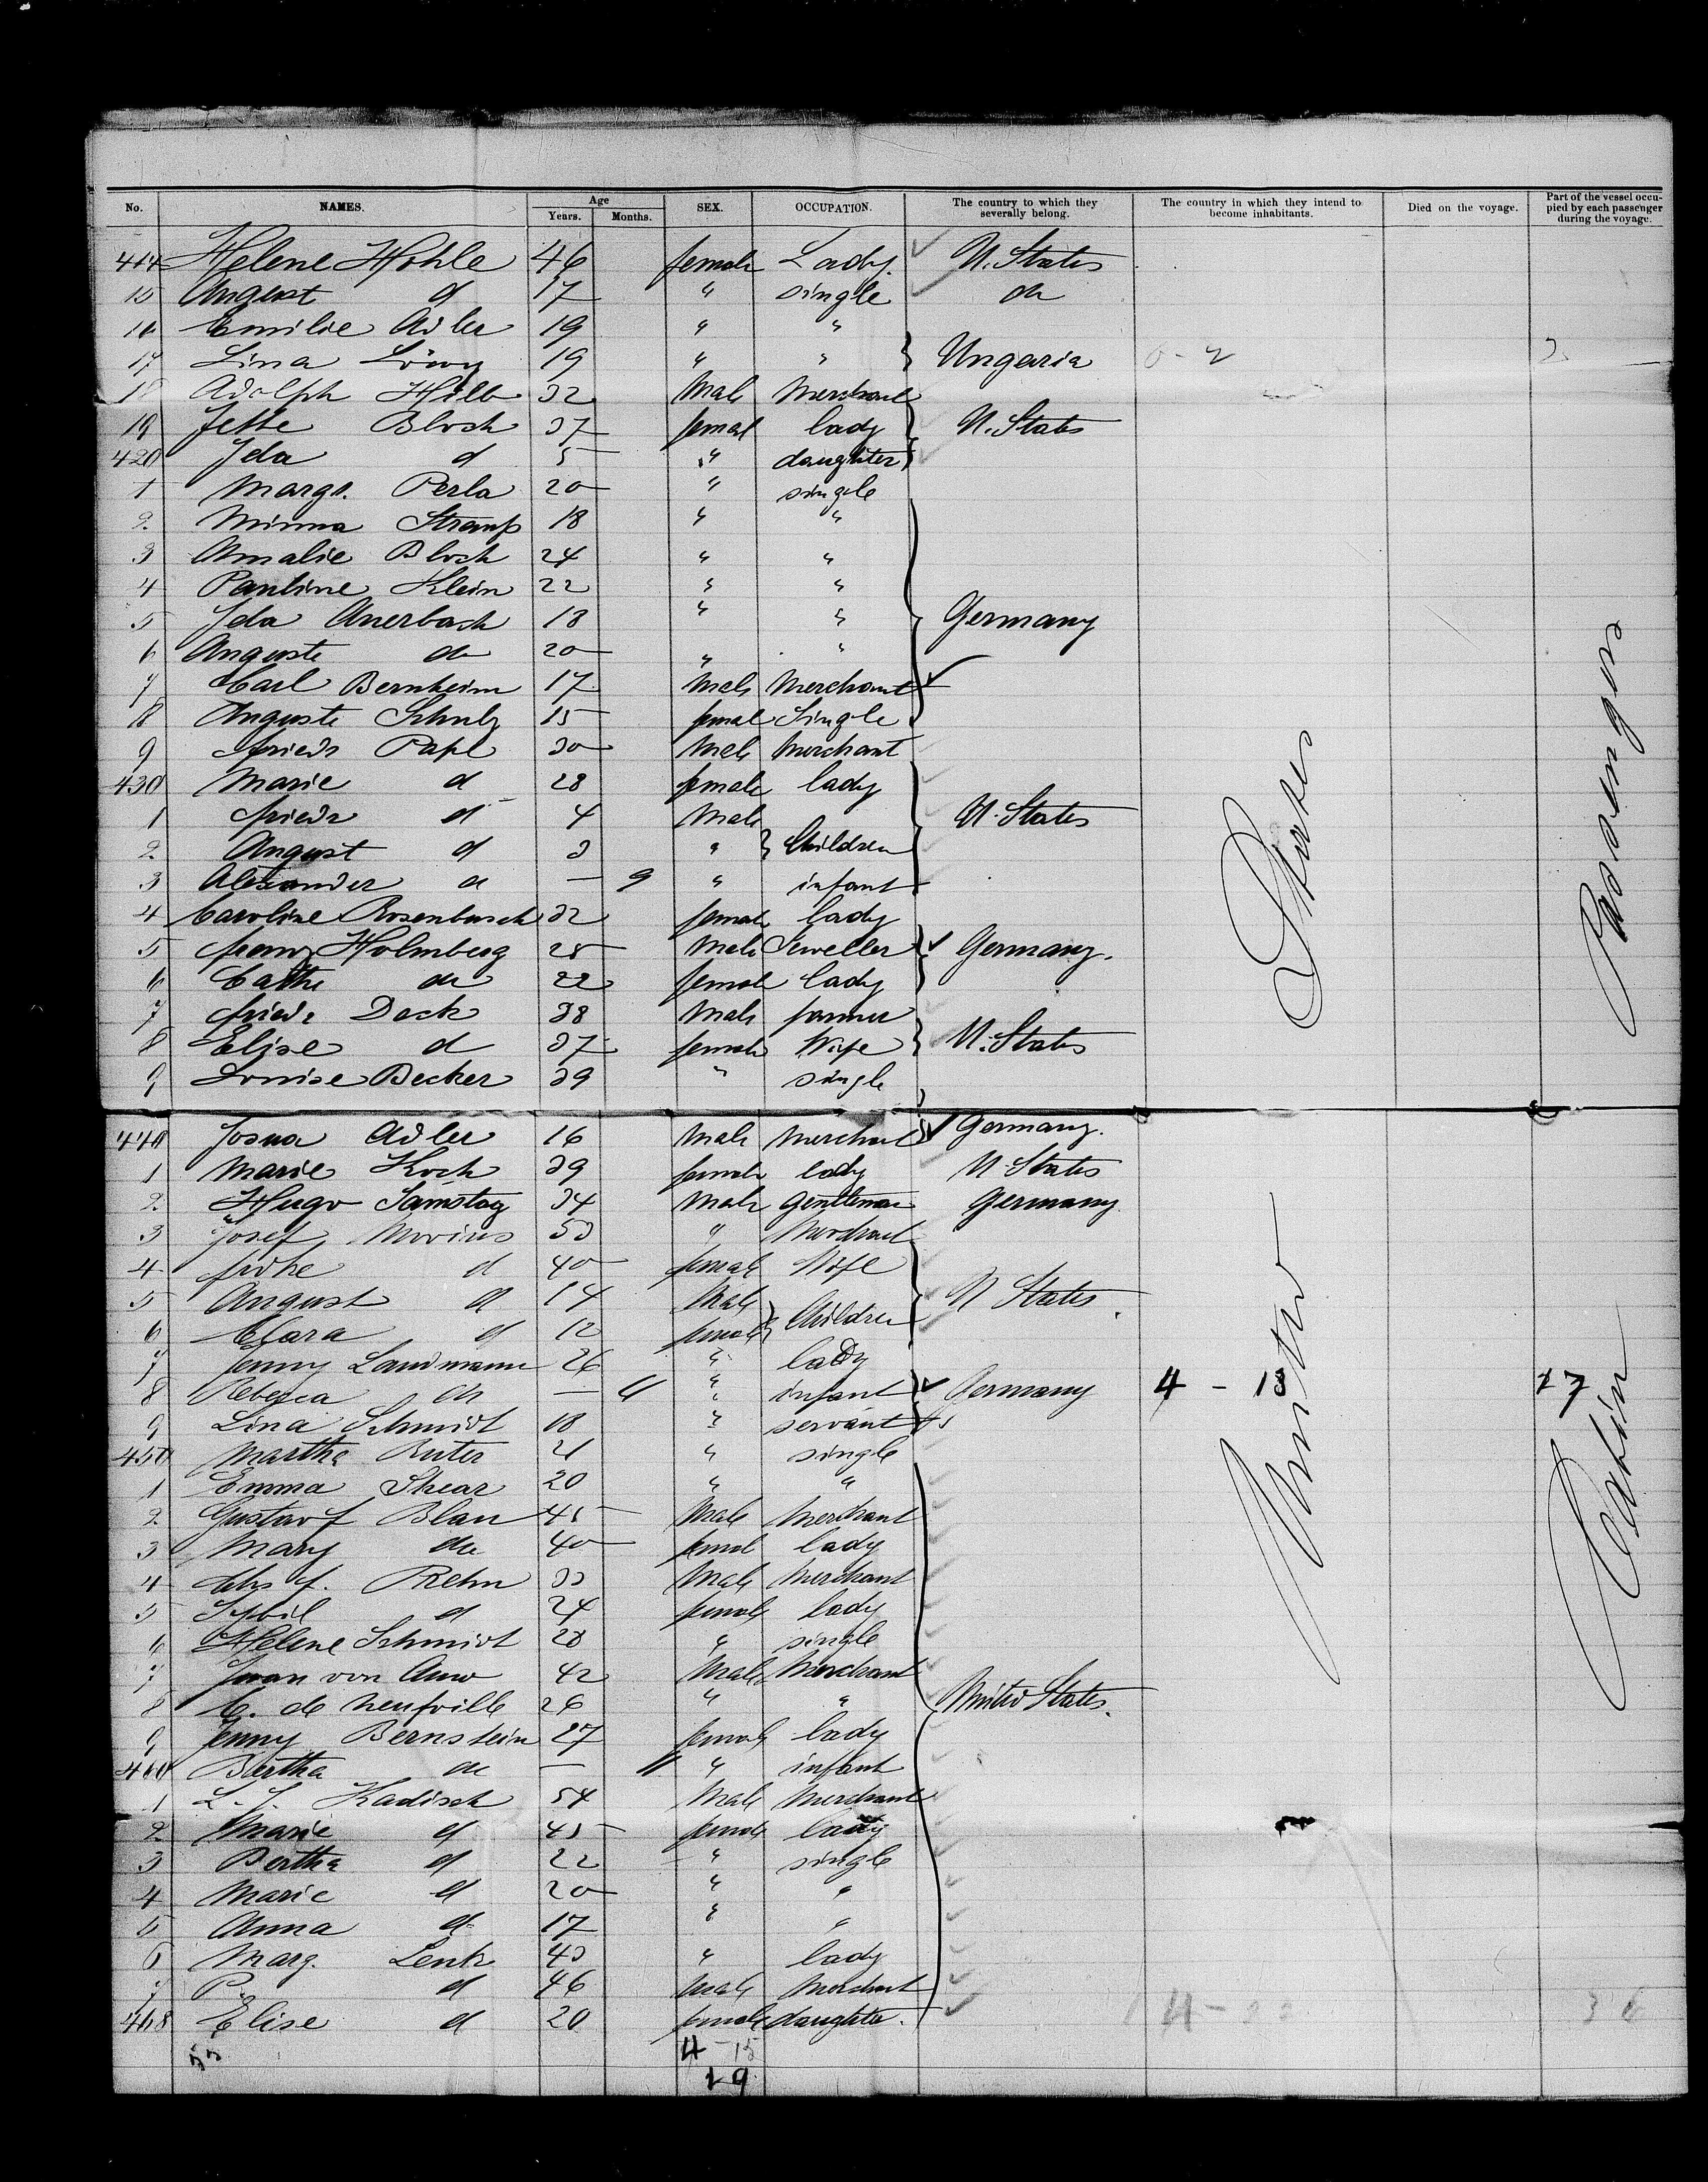 No. NAMES. Age Years. Months. SEX. OCCUPATION. The country to which they severally belong. The country in which they intend to become inhabitants. Died on the voyage. Part of the vessel occupied by each passenger during the voyage.
414 Helene Hohle 46 female Lady. U. States
15 August d 17 " single do
16 Emilie Adler 19 " "
17 Lina Löwy 19 " " Ungaria
18 Adolph Hilb 32 Male Merchant
19 Jette Bloch 37 femal lady U. States
420 Ida d 5 " daughter
1 Margr. Perla 20 " single
2 Minna Strauß 18 " "
3 Amalie Bloch 24 " "
4 Pauline Klein 22 " "
5 Ida Auerbach 18 " " Germany
6 Auguste do 20 " "
7 Carl Bernheim 17 Male Merchant
8 Auguste Schulz 15 femal Single
9 friedr Pape 30 Male Merchant
430 Marie d 28 female lady
1 friedr d 4 Male U. States
2 August d 3 " Children
3 Alexander d — 9 " infant
4 Caroline Rosenbusch 32 female lady
5 franz Holmberg 25 Male Jeweller Germany.
6 Cathe do 22 female lady
7 friedr Deck 38 Male farmer
8 Elise d 37 female Wife U. States
9 Louise Becker 39 " single
440 Josua Adler 16 Male Merchant Germany.
1 Marie Koch 39 female lady U. States
2 Hugo Samstag 34 Male Gentleman Germany
3 Josef Movius 53 " Merchant
4 d 40 female Wife
5 August d 14 Male Children U States.
6 Clara d 12 female
7 Jenny Landmann 26 " lady
8 Rebecca do — " infant Germany 4 - 13 17
9 Lina Schmidt 18 " servant
450 Martha Ruter 21 " single
1 Emma Shear 20 " "
2 Gustav f Blau 45 Male Merchant
3 Mary do 40 femal lady
4 Chs f. Rehn 33 Male Merchant
5 Sybil d 24 female lady
6 Helene Schmidt 28 " single
7 von Auw 42 Male Merchant
8 C. de Neufville 26 " " United States.
9 Jenny Bernstein 27 female lady
460 Bertha do — 11 " infant
1 L. J. Kadisch 54 Male Merchant
2 Marie d 45 female lady
3 Bertha d 22 " single
4 Marie d 20 " "
5 Anna d 17 " "
6 Marg. Lenk 43 " lady
7 P. d 46 Male Merchant
468 Elise d 20 female daughter.
55 4 - 15
19
United States
Cabin Passengers